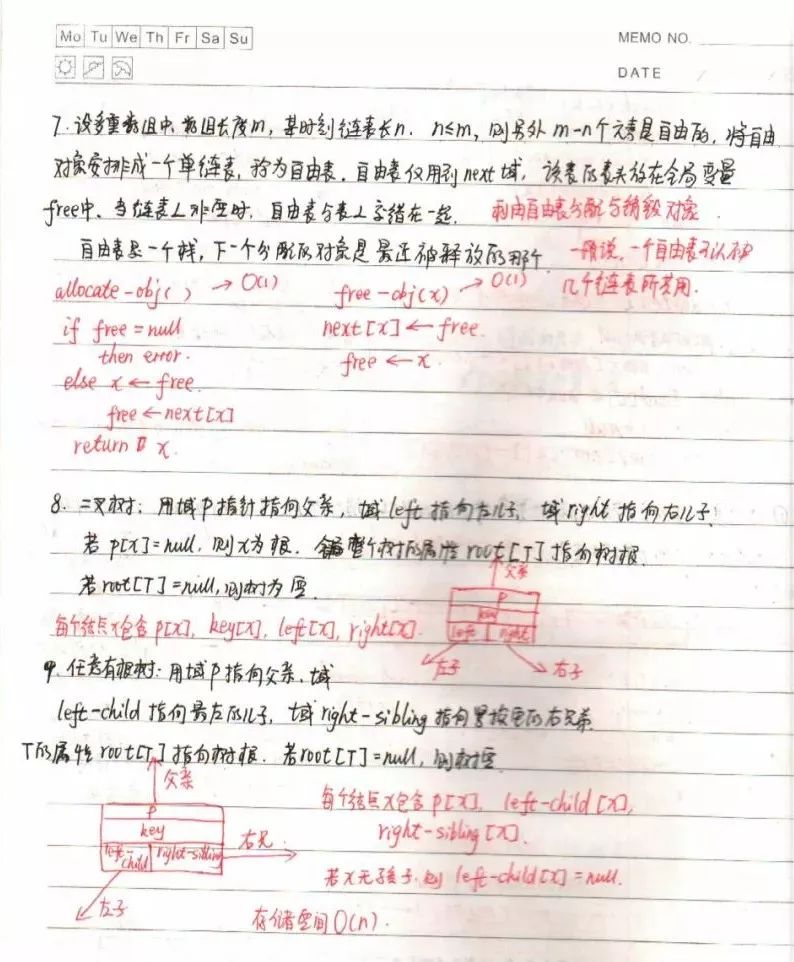 Mo Tu We Th Fr Sa Su
MEMO NO.
DATE / /
7. 设多重数组中, 数组长度m, 某时刻链表长n. n≤m, 则另外 m-n个元素是自由的, 将自由
对象安排成一个单链表, 称为自由表. 自由表仅用到next域, 该表的表头放在全局变量
free中. 当链表L非空时, 自由表与表L交错在一起. 利用自由表分配与销毁对象.
自由表是一个栈, 下一个分配的对象是最近被释放的那个. 一般说, 一个自由表可以被
几个链表所共用.
allocate-obj( ) → O(1)
free-obj(x) → O(1)
if free = null
next[x] ← free.
then error.
free ← x.
else x ← free.
free ← next[x]
return x.
8. 二叉树: 用域P指针指向父亲, 域left指向左儿子, 域right指向右儿子.
若 p[x]=null, 则x为根. 整个树的属性root[T]指向树根.
若root[T]=null, 则树为空.
父亲
P
key
left right
左子 右子
每个结点x包含p[x], key[x], left[x], right[x].
9. 任意有根树: 用域P指向父亲. 域
left-child 指向最左的儿子, 域right-sibling 指向紧挨它的右兄弟.
T的属性root[T]指向树根. 若root[T]=null, 则树空.
父亲
P
key
left-child right-sibling
右兄.
左子
每个结点x包含p[x], left-child[x],
right-sibling[x].
若x无孩子, 则 left-child[x]=null.
存储空间O(n).